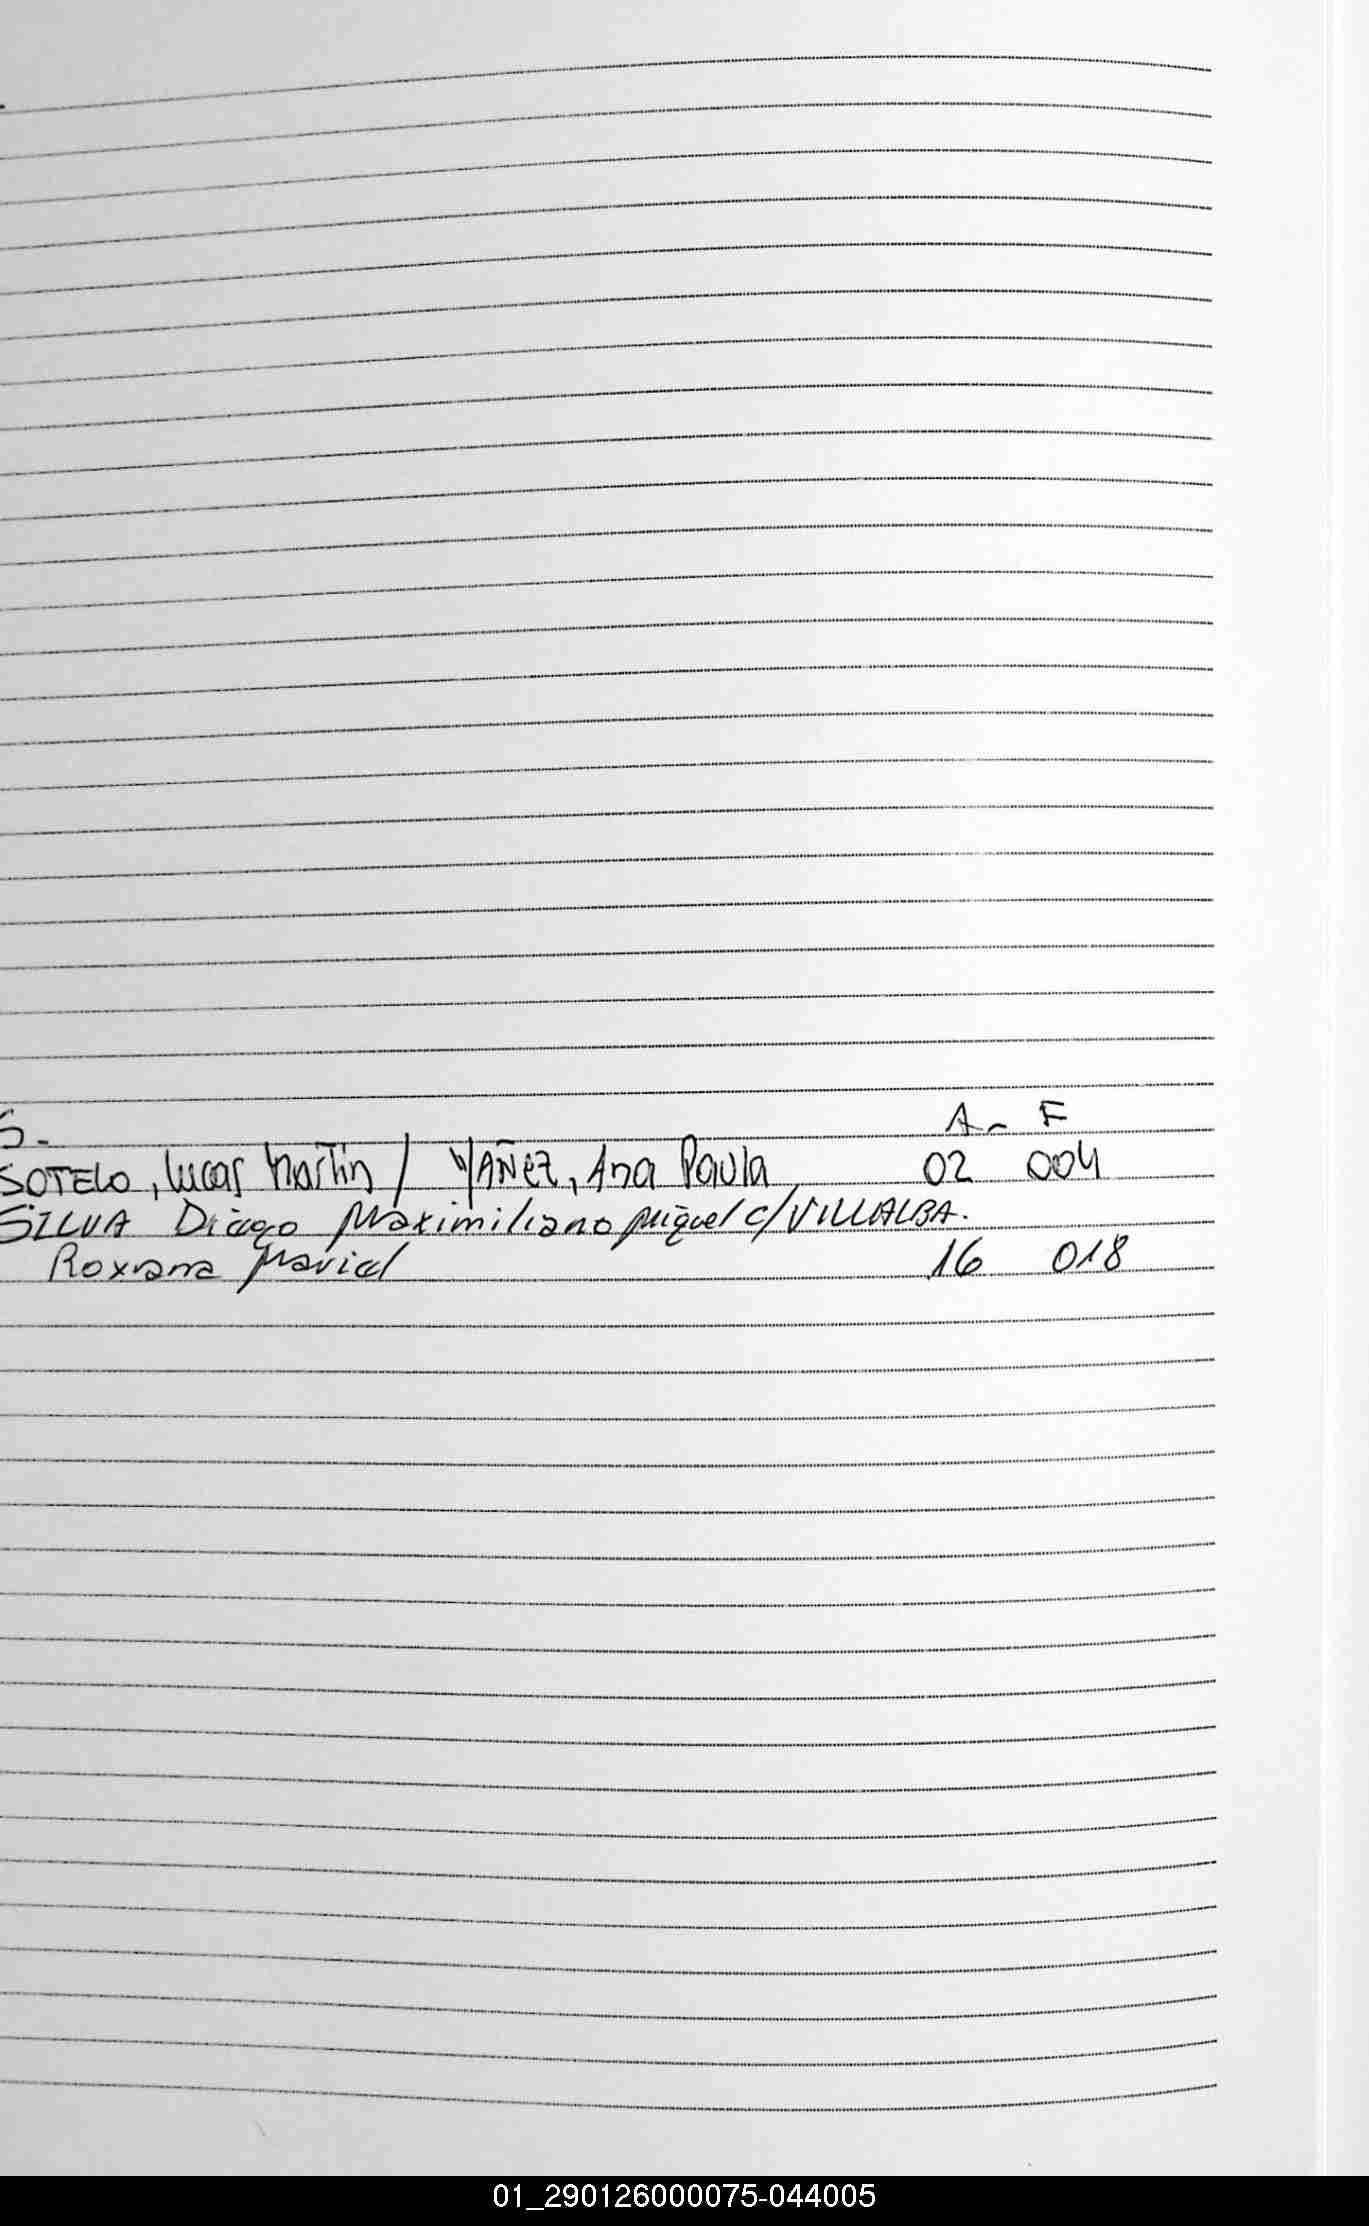 S.-
A- F
SOTELO, Lucas Martin / YAÑEZ, Ana Paula 02 004
SILVA Diego Maximiliano Miguel c/ VILLALBA.
Roxana Mariel 16 018
01_290126000075-044005